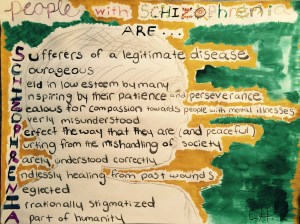 people with SCHIZOphrenia
ARE...
Sufferers of a legitimate disease
Courageous
Held in low esteem by many
Inspiring by their patience and perseverance
Zealous for compassion towards people with mental illnesses
Overly misunderstood
Perfect the way that they are (and peaceful)
Hurting from the mishandling of society
Rarely understood correctly
Endlessly healing from past wounds
Neglected
Irrationally stigmatized
A part of humanity